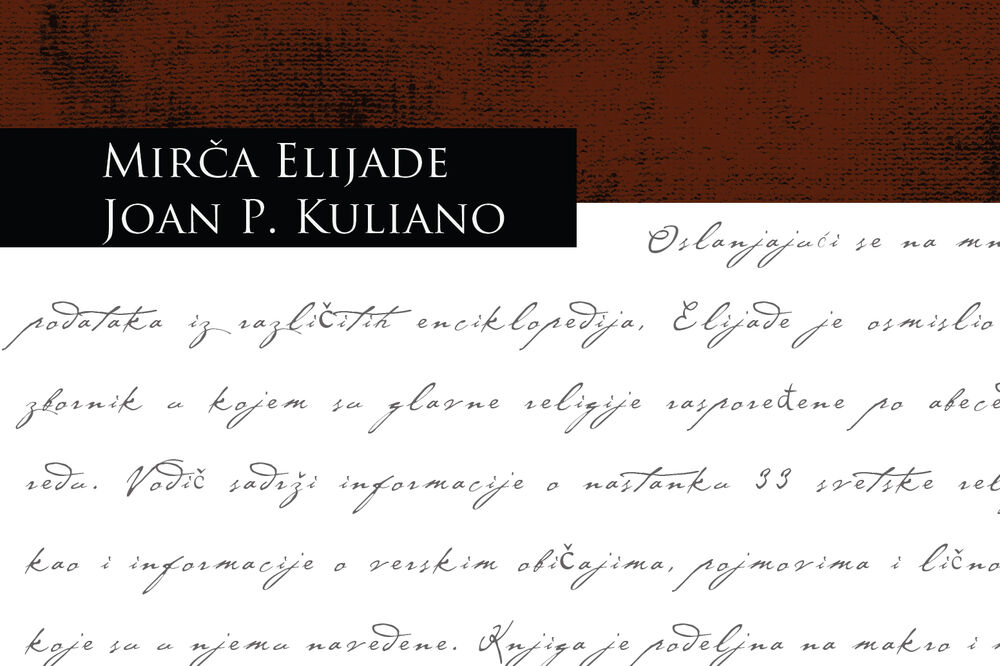 MIRČA ELIJADE
JOAN P. KULIANO
Oslanjajući se na
podataka iz različitih enciklopedija, Elijade je osmislio
zbornik u kojem su glavne religije raspoređene po
redu. Vodič sadrži informacije o nastanku 33 svetske
kao i informacije o verskim običajima, pojmovima i
koje su u njemu navedene. Knjiga je podeljna na makro i